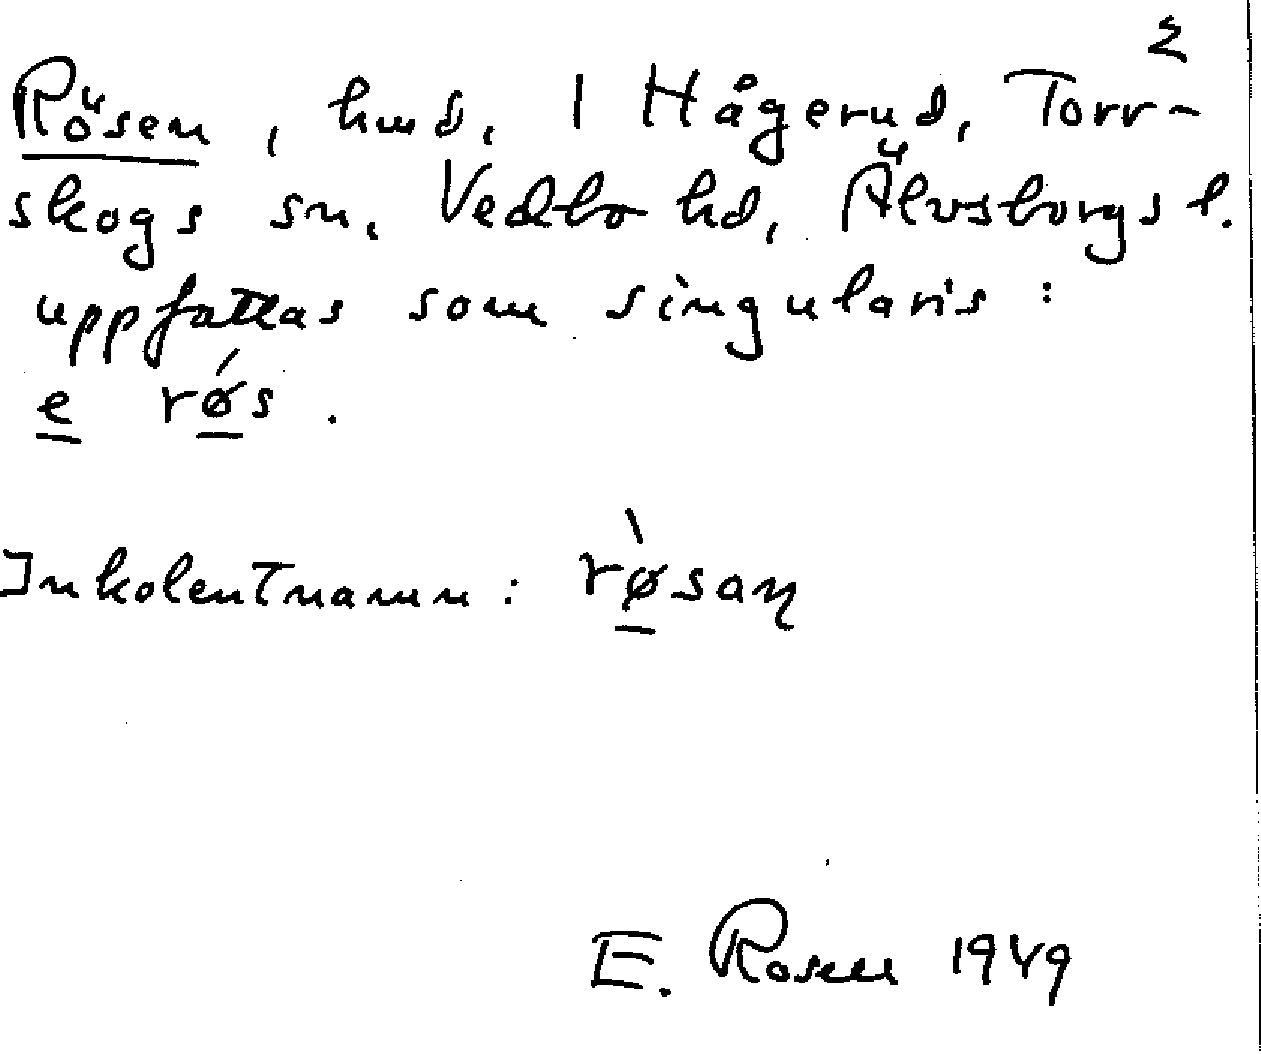 Σ
Rösen, hmd, 1 Hågerud, Torr-
skogs sn, Vedbo hd, Älvsborgs l.
uppfattas som singularis:
e røs.
Inkolentnamn: røsaɳ
E. Rosen 1949